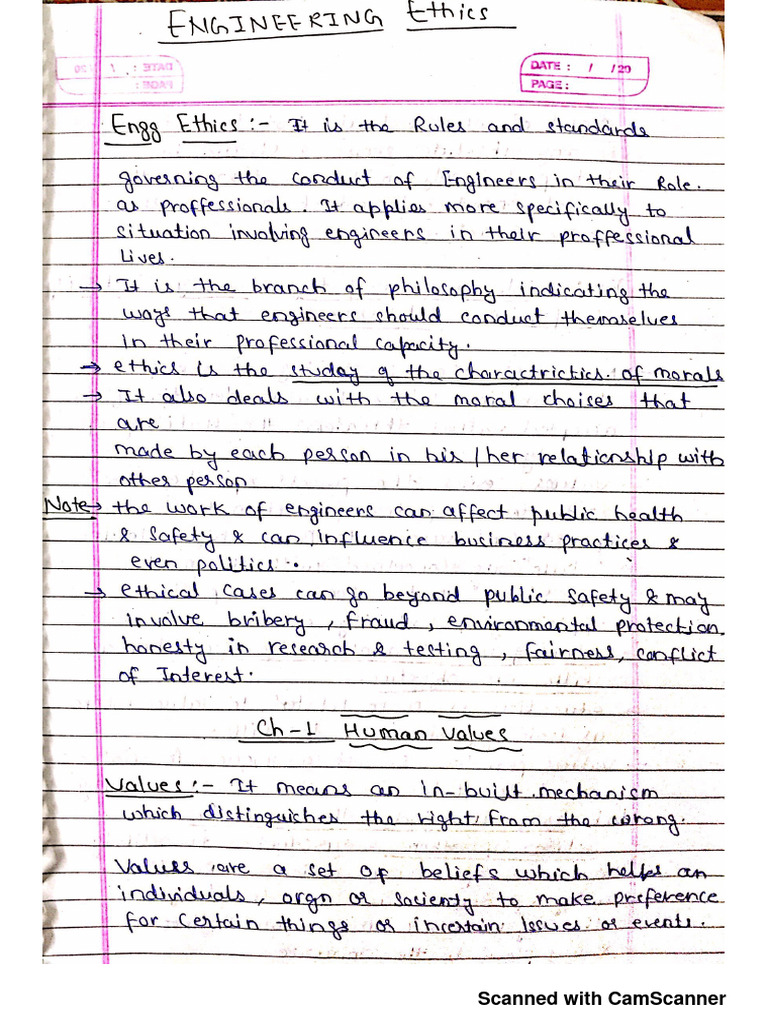 ENGINEERING Ethics
DATE : / /20
PAGE :
Engg Ethics :- It is the Rules and standards
governing the conduct of Engineers in their Role.
as proffessionals. It applies more specifically to
situation involving engineers in their proffessional
Lives.
→ It is the branch of philosophy indicating the
ways that engineers should conduct themselves
in their professional capacity.
→ ethics is the studay of the charactrictics. of morals
→ It also deals with the moral choises that
are
made by each person in his / her relationship with
other person
Note → the work of engineers can affect public health
& safety & can influence business practices &
even politics .
→ ethical cases can go beyond public safety & may
involve bribery , fraud , environmental protection,
honesty in research & testing , fairness, conflict
of Interest.
Ch-1 Human Values
Values :- It means an in-built mechanism
which distinguishes the right from the wrong.
Values are a set of beliefs which helps an
individuals, orgn or socienty to make preference
for certain things or incertain Issues or events.
Scanned with CamScanner